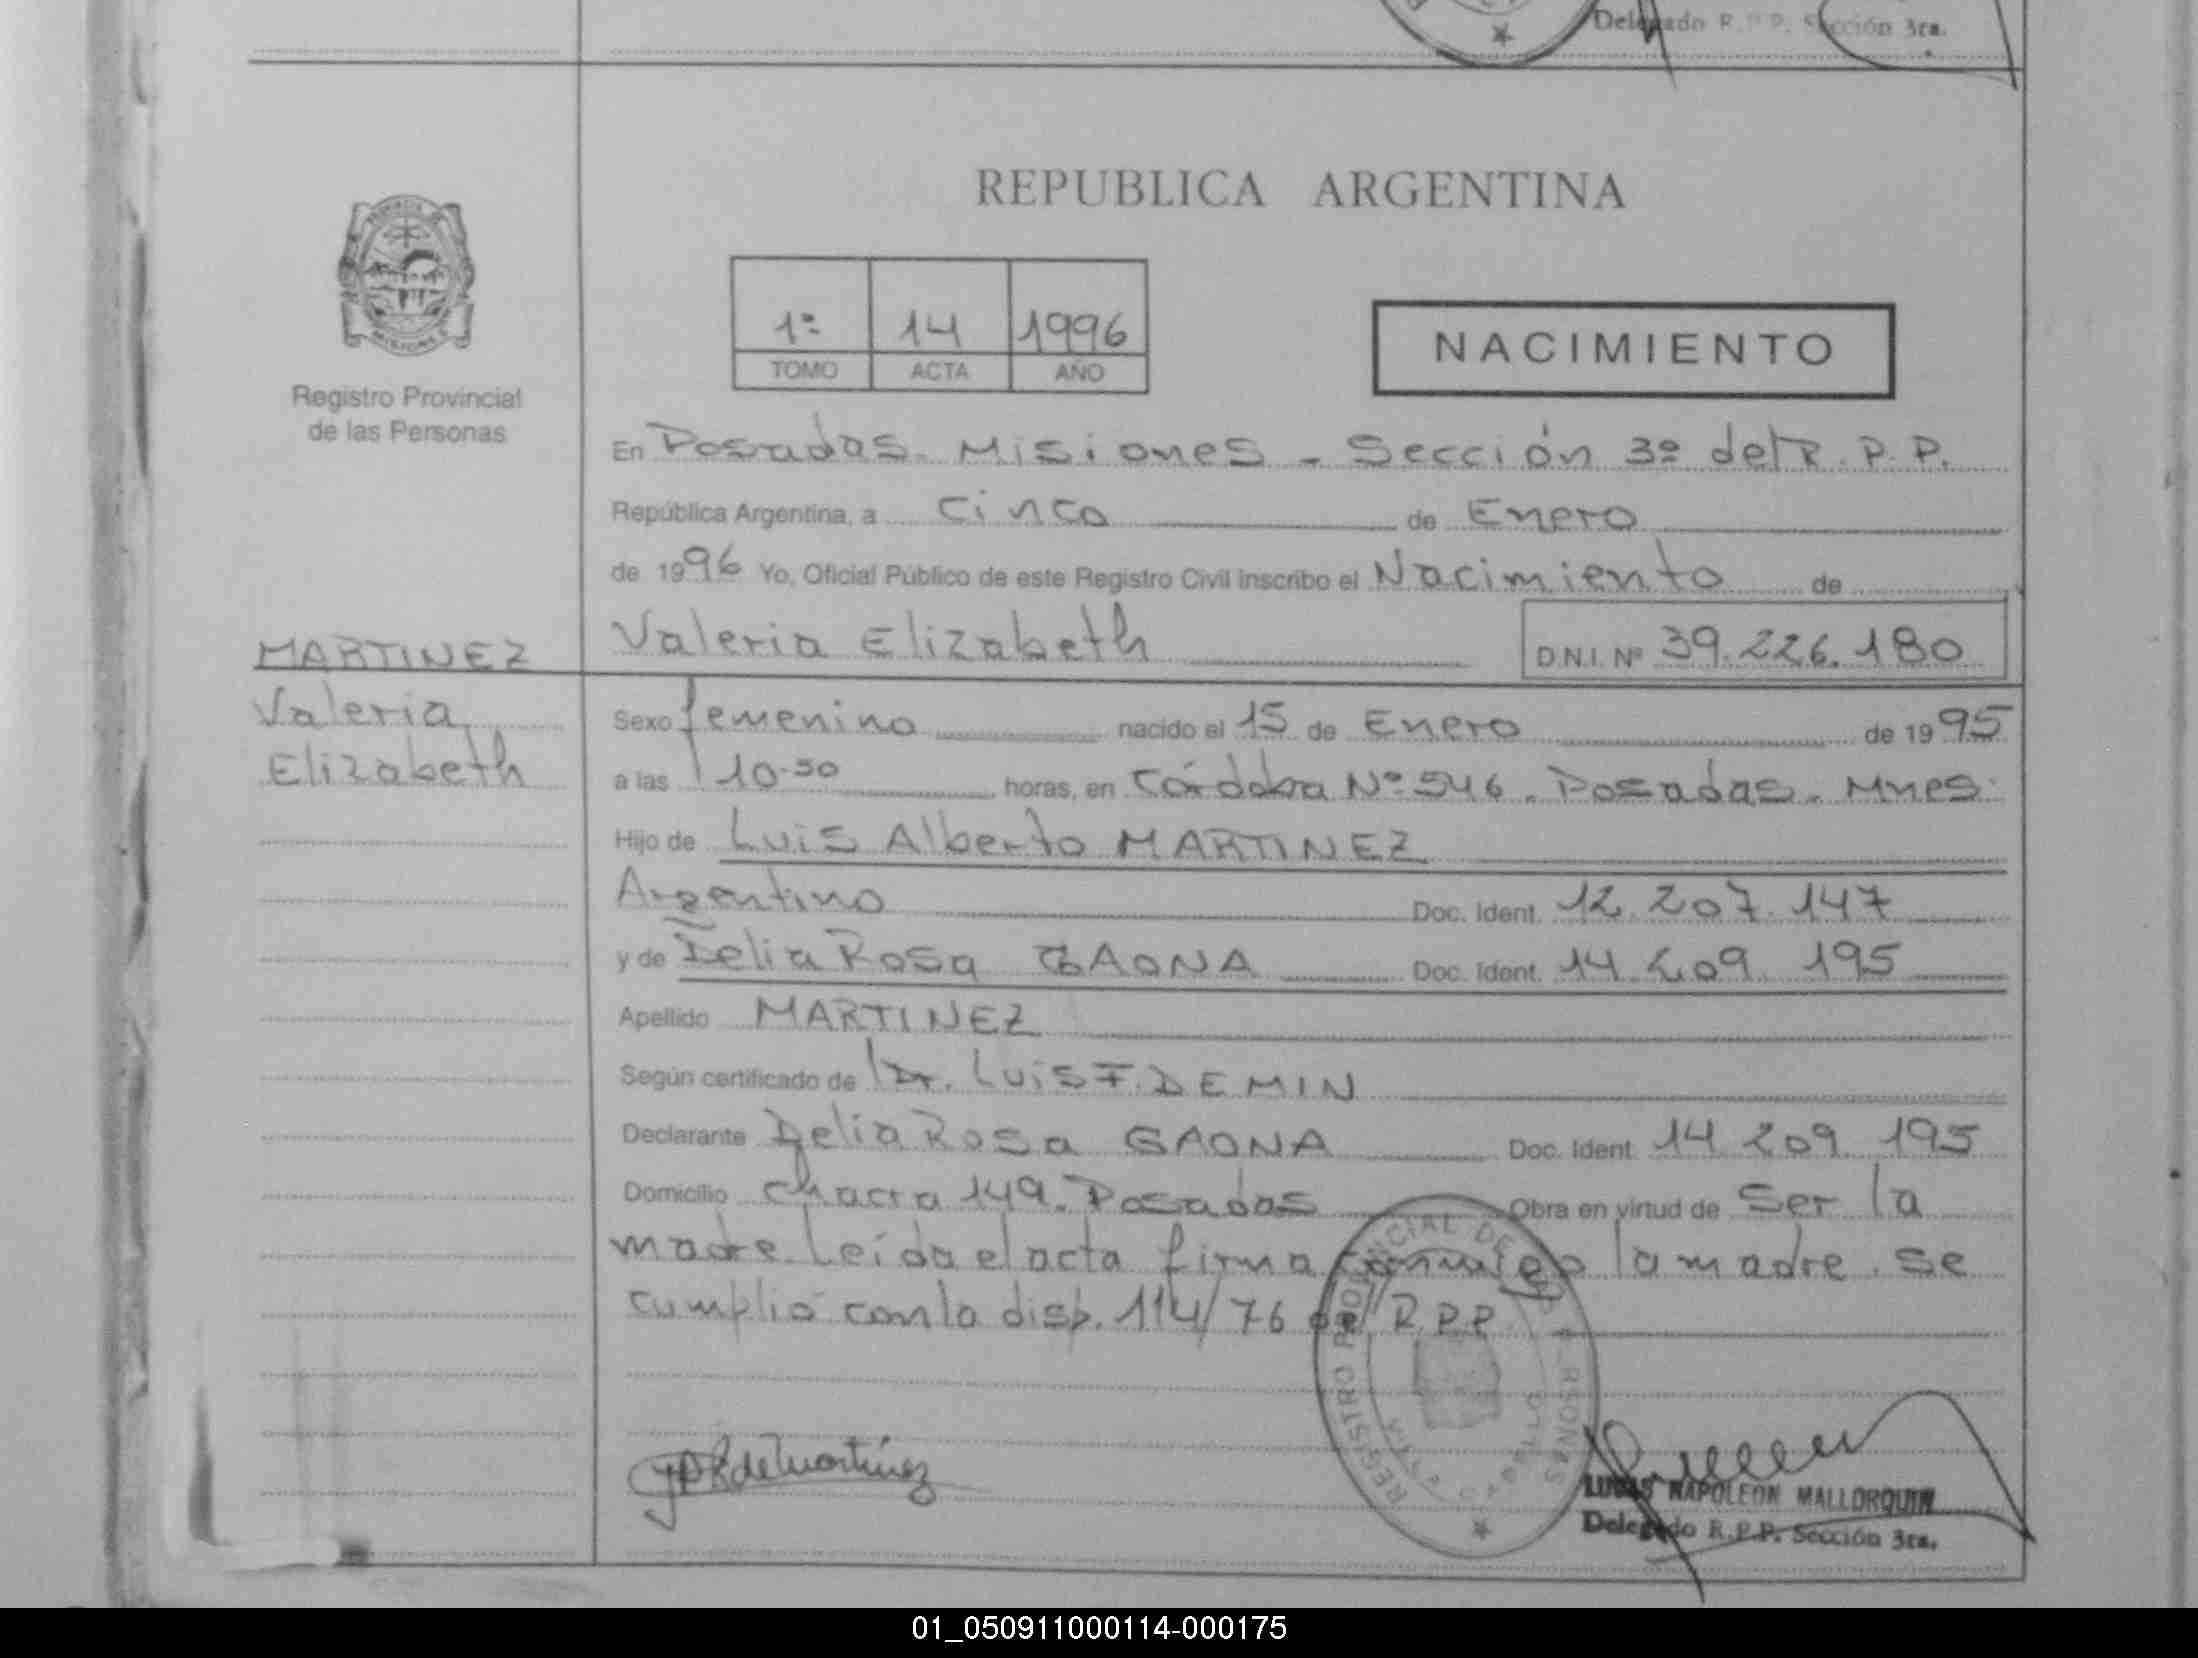 Delegado R.P.P. Sección 3ra.
REPUBLICA ARGENTINA
PROVINCIA DE
MISIONES
Registro Provincial
de las Personas
1º 14 1996
TOMO ACTA AÑO
NACIMIENTO
En Posadas. Misiones - Sección 3º del R.P.P.
República Argentina, a cinco de Enero
de 1996 Yo, Oficial Público de este Registro Civil inscribo el Nacimiento de
Valeria Elizabeth D.N.I. Nº 39.226.180
MARTINEZ
Valeria
Elizabeth
Sexo femenino nacido el 15 de Enero de 1995
a las 10.50 horas, en Córdoba Nº 546. Posadas. Mnes.
Hijo de Luis Alberto MARTINEZ
Argentino Doc. Ident. 12.207.147
y de Delia Rosa GAONA Doc. Ident. 14.209.195
Apellido MARTINEZ
Según certificado de Dr. Luis F. DEMIN
Declarante Delia Rosa GAONA Doc. Ident. 14.209.195
Domicilio Chacra 149. Posadas Obra en virtud de Ser la
madre. Leída el acta firma conmigo la madre. Se
cumplió con la disp. 114/76 del R.P.P.
REGISTRO PROVINCIAL DE LAS PERSONAS
de Martínez
LUCAS NAPOLEON MALLORQUIN
Delegado R.P.P. Sección 3ra.
01_050911000114-000175